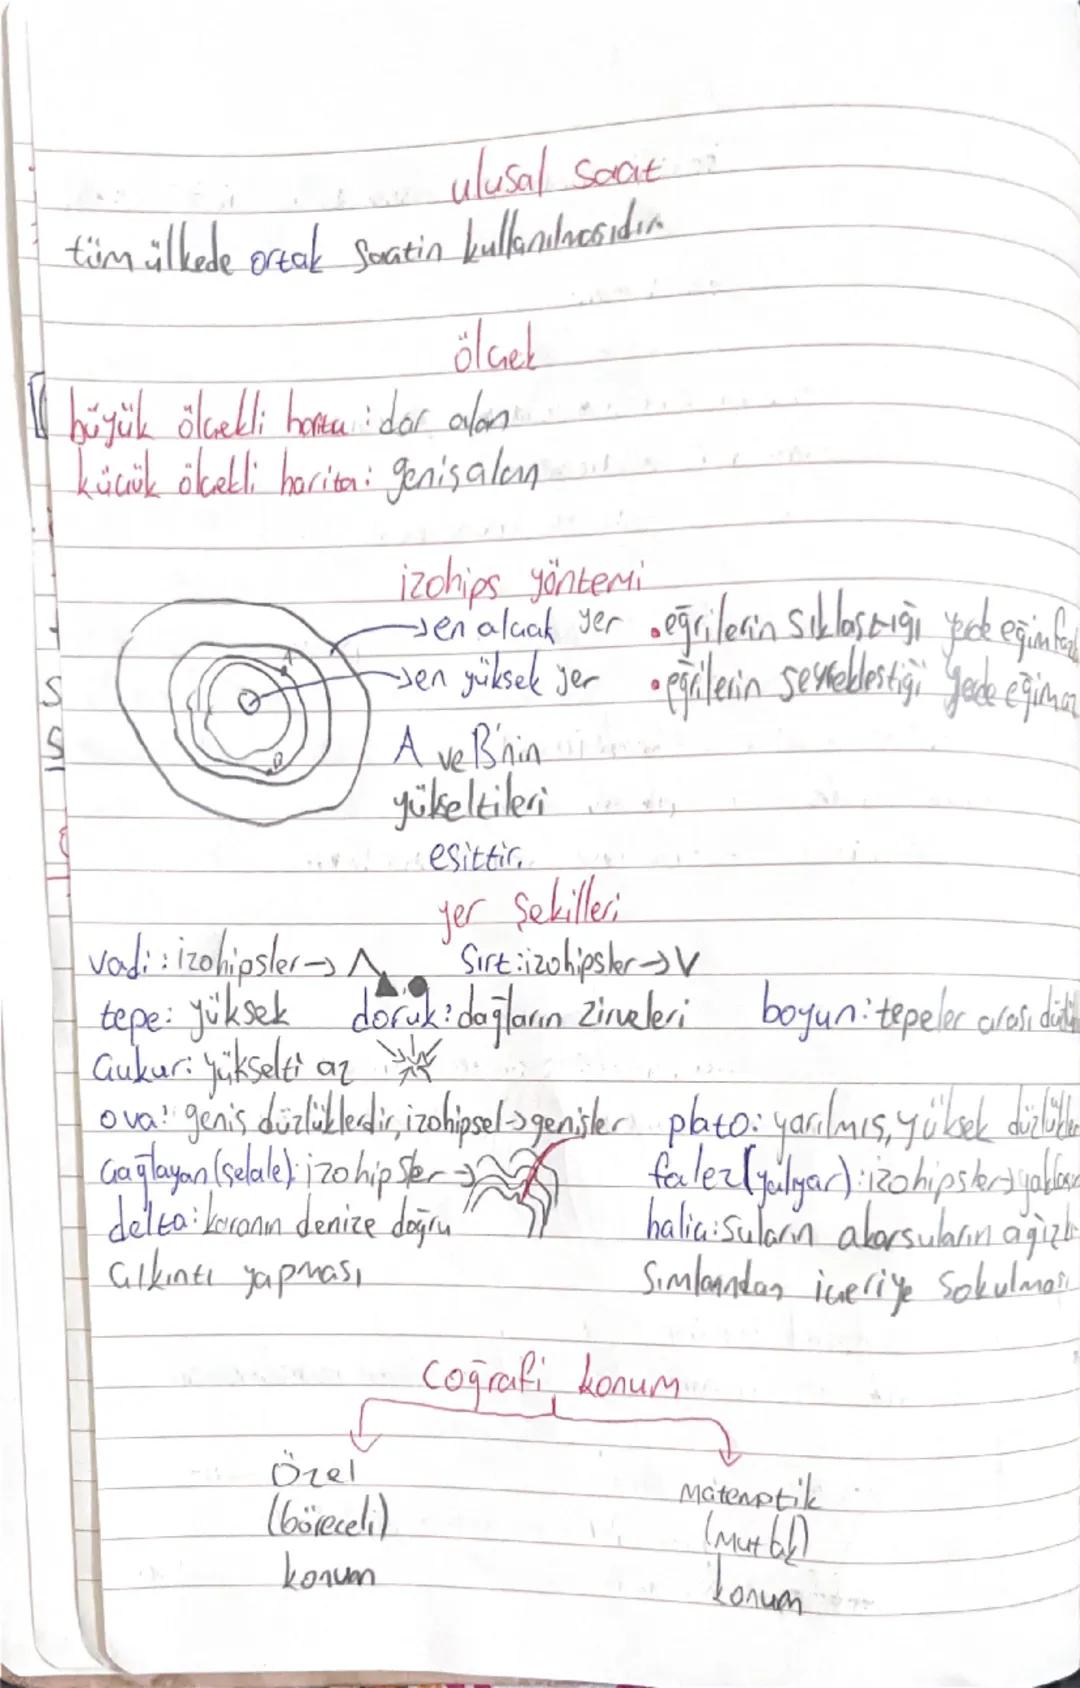 ulusal saat
tüm ülkede ortak saatin kullanılmasıdır
ölçek
büyük ölçekli harita: dar alan
küçük ölçekli harita: geniş alan
izohips yöntemi
→en alçak yer •eğrilerin sıklaştığı yerde eğim fazl
→en yüksek yer •eğrilerin seyrekleştiği yerde eğim az
A
B
A ve B'nin
yükseltileri
eşittir.
yer şekilleri
vadi: izohipsler→ Λ Sırt: izohipsler→V
tepe: yüksek doruk: dağların zirveleri boyun: tepeler arası
Çukur: yükselti az
ova: geniş düzlüklerdir, izohipsel→genişler plato: yarılmış, yüksek düzlükler
Çağlayan (şelale): izohipsler→ falez (yalıyar): izohipsler→
delta: karanın denize doğru haliç: Suların akarsuların ağızk
çıkıntı yapması sımlarından içeriye sokulması
coğrafi konum
Özel Matematik
(Göreceli) (Mutlak)
konum konum